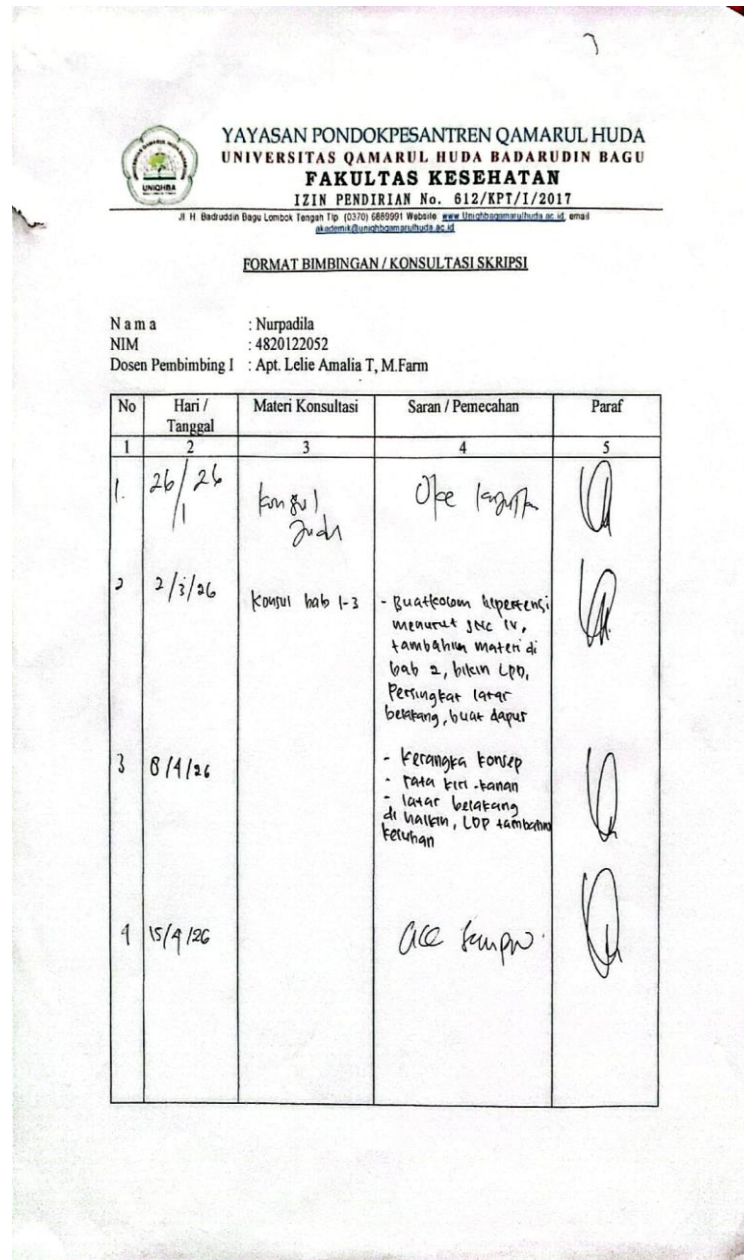 UNIQHBA
YAYASAN PONDOKPESANTREN QAMARUL HUDA
UNIVERSITAS QAMARUL HUDA BADARUDIN BAGU
FAKULTAS KESEHATAN
IZIN PENDIRIAN No. 612/KPT/I/2017
Jl. H. Badruddin Bagu Lombok Tengah Tlp. (0370) 6889991 Website www.Uniqhbaqamarulhuda.ac.id, email
akademik@uniqhbaqamarulhuda.ac.id
FORMAT BIMBINGAN / KONSULTASI SKRIPSI
N a m a : Nurpadila
NIM : 4820122052
Dosen Pembimbing I : Apt. Lelie Amalia T, M.Farm
No Hari / Materi Konsultasi Saran / Pemecahan Paraf
Tanggal
1 2 3 4 5
1. 26/26 Konsul Oke
/1
2 2/3/26 Konsul bab 1-3 - Buat kolom hipertensi
menurut JNC IV,
tambahin materi di
bab 2, bikin LPD,
Persingkat latar
belakang, buat dapus
3 8/4/26 - Kerangka konsep
- rata kiri-kanan
- latar belakang
di halkin, LDP tambahin
keluhan
4 15/4/26 acc